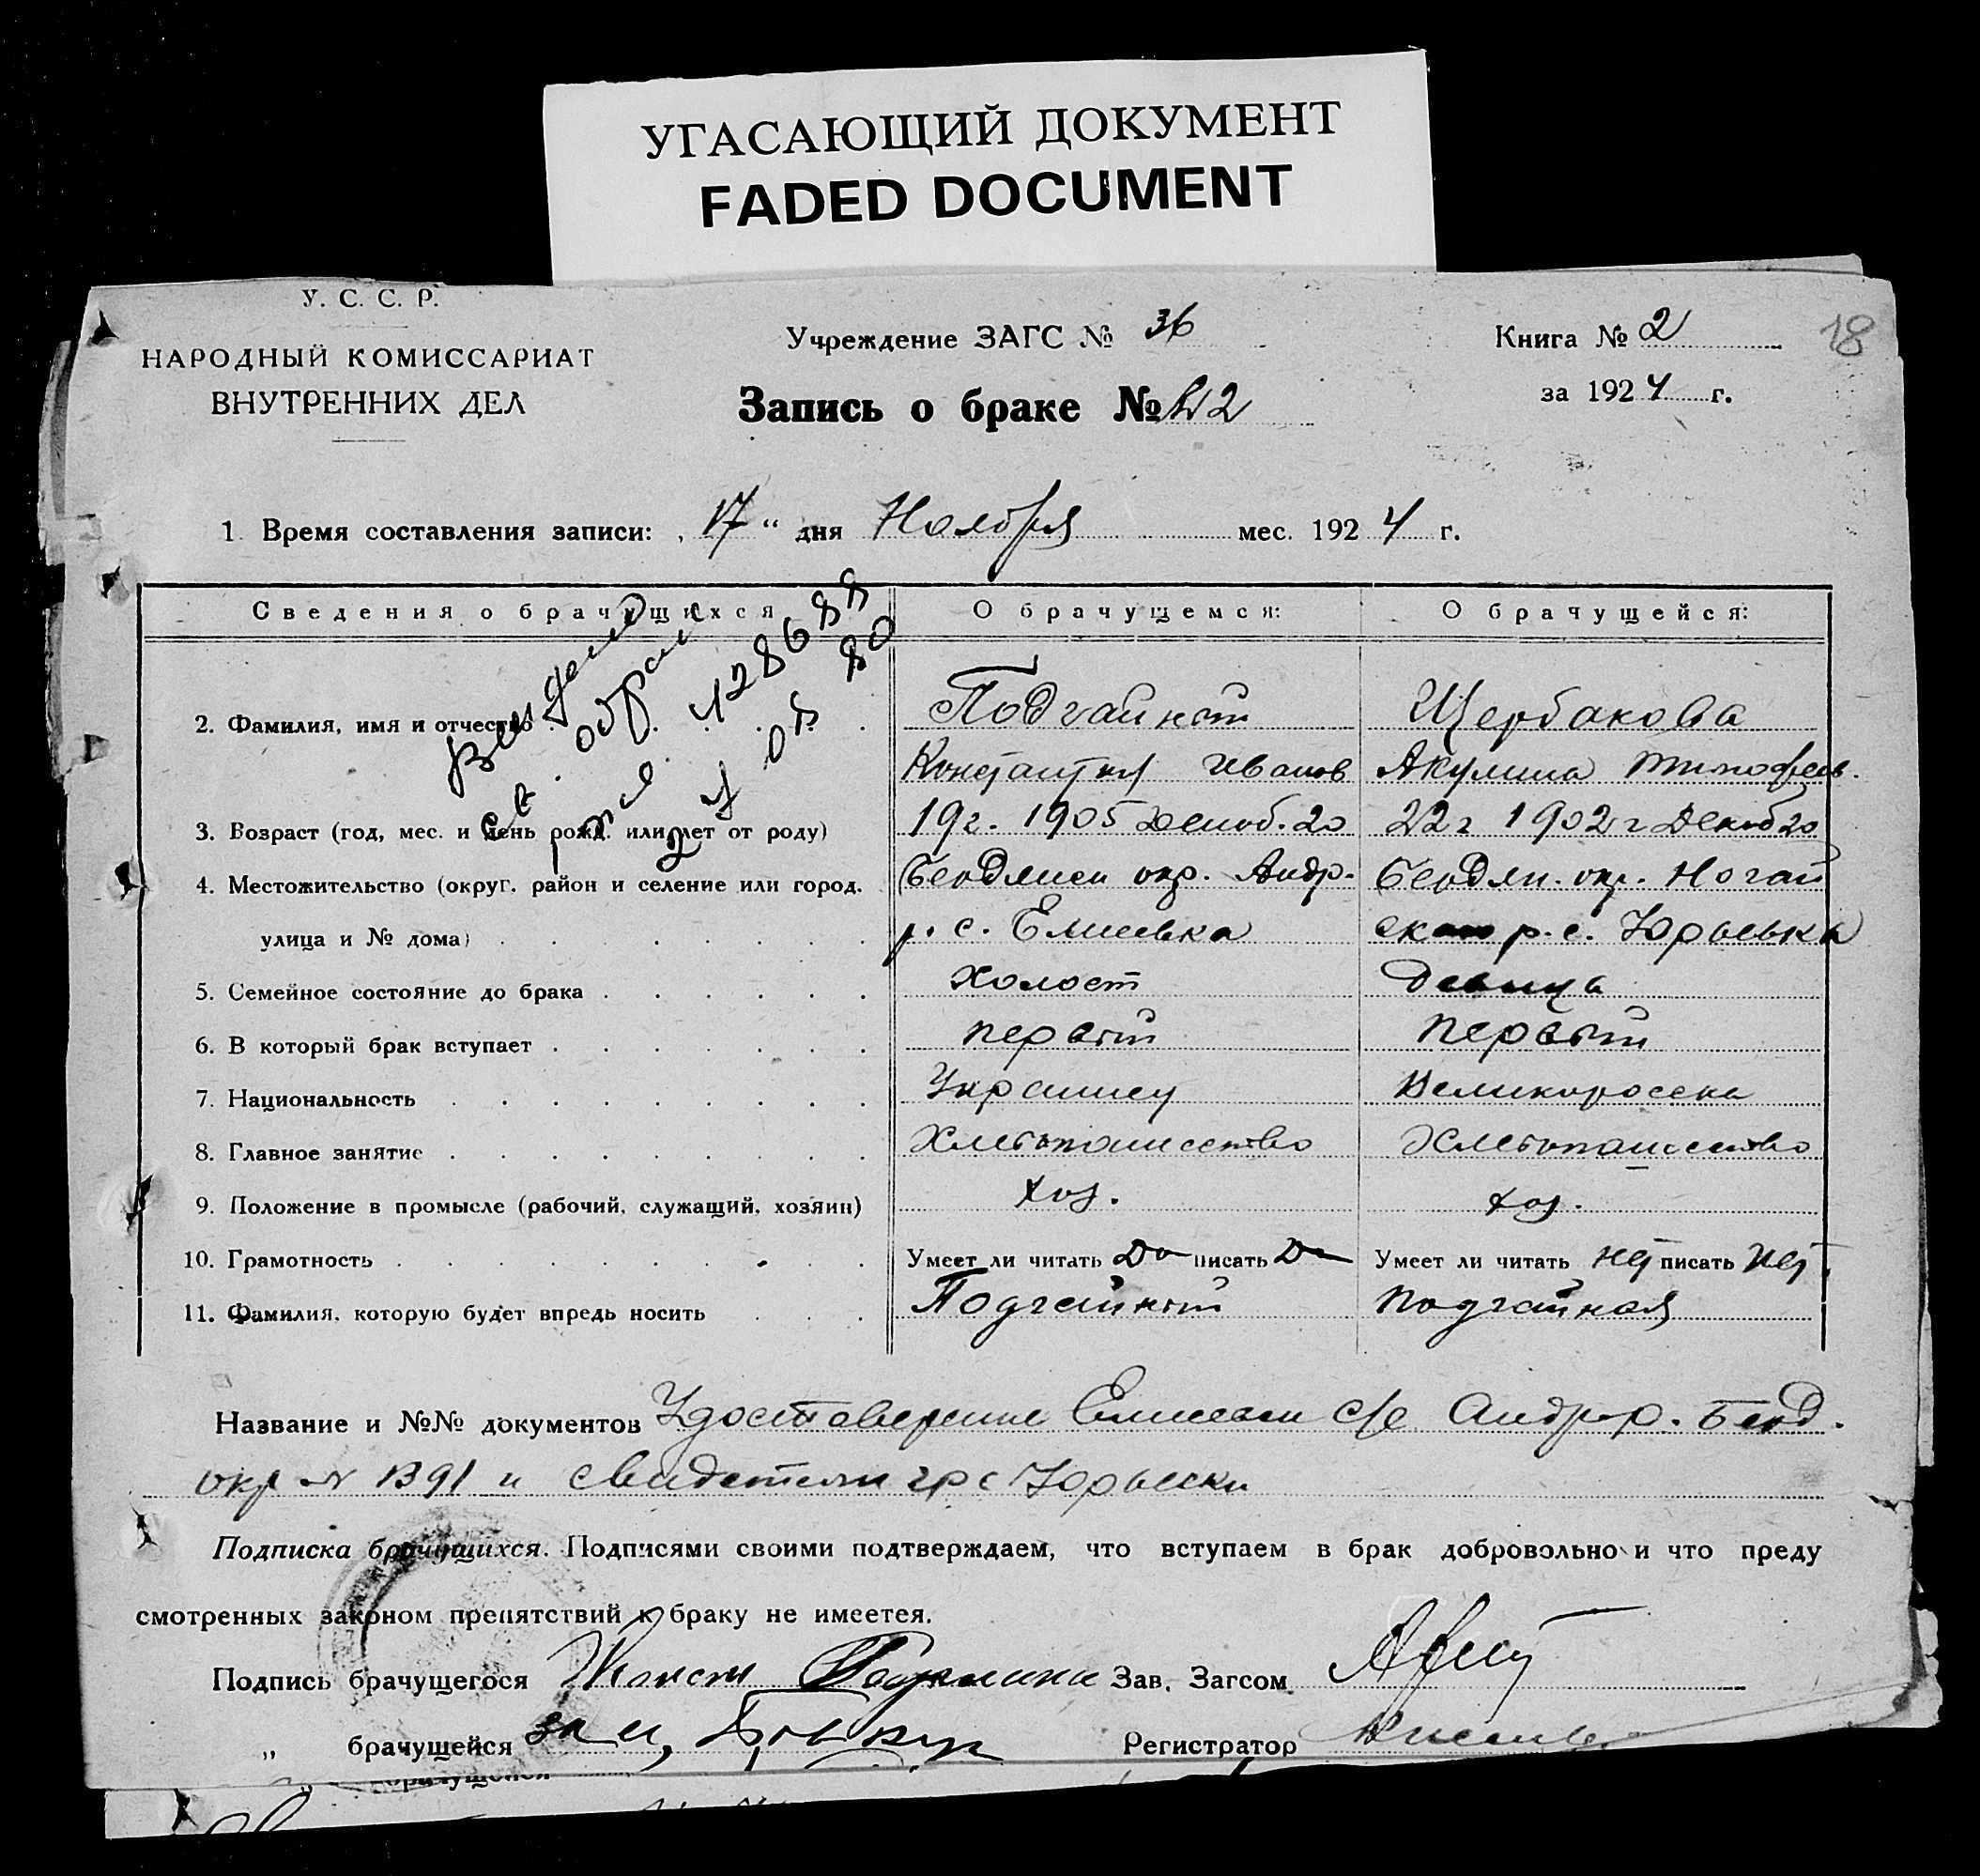 УГАСАЮЩИЙ ДОКУМЕНТ
FADED DOCUMENT
У. С. С. Р.
НАРОДНЫЙ КОМИССАРИАТ
ВНУТРЕННИХ ДЕЛ
Учреждение ЗАГС № 36
Запись о браке №
Книга № 2
за 1924 г.
18
1 Время составления записи: „ 17 “ дня Ноября мес. 1924 г.
Сведения о брачущихся
О брачущемся:
О брачущейся:
2. Фамилия, имя и отчество
Подгайный
Щербакова
Констант Иванов
Акулина Тимофеев.
3. Возраст (год, мес. и день рожд. или лет от роду)
19 г. 1905 20
22 г 1902 г Декаб 20
4. Местожительство (округ, район и селение или город,
Бердянск окр. Андр.
Бердян. окр. Ногай
улица и № дома)
р. с. Елисеевка
р. с. Юрьевка
5. Семейное состояние до брака
Холост
Девица
6. В который брак вступает
первый
первый
7. Национальность
Украинец
Великоросска
8. Главное занятие
Хлебопашество
Хлебопашество
9. Положение в промысле (рабочий, служащий, хозяин)
хоз.
хоз.
10. Грамотность
Умеет ли читать Да писать Да
Умеет ли читать нет писать нет
11. Фамилия, которую будет впредь носить
Подгайный
Подгайная
Название и №№ документов Удостоверение с/с Андр р. Берд.
окр № 1391 и свидетели гр с Юрьевки
Подписка брачущихся. Подписями своими подтверждаем, что вступаем в брак добровольно и что преду
смотренных законом препятствий к браку не имеетея.
Подпись брачущегося Конст Зав. Загсом
„ брачущейся за Регистратор
брачущейся